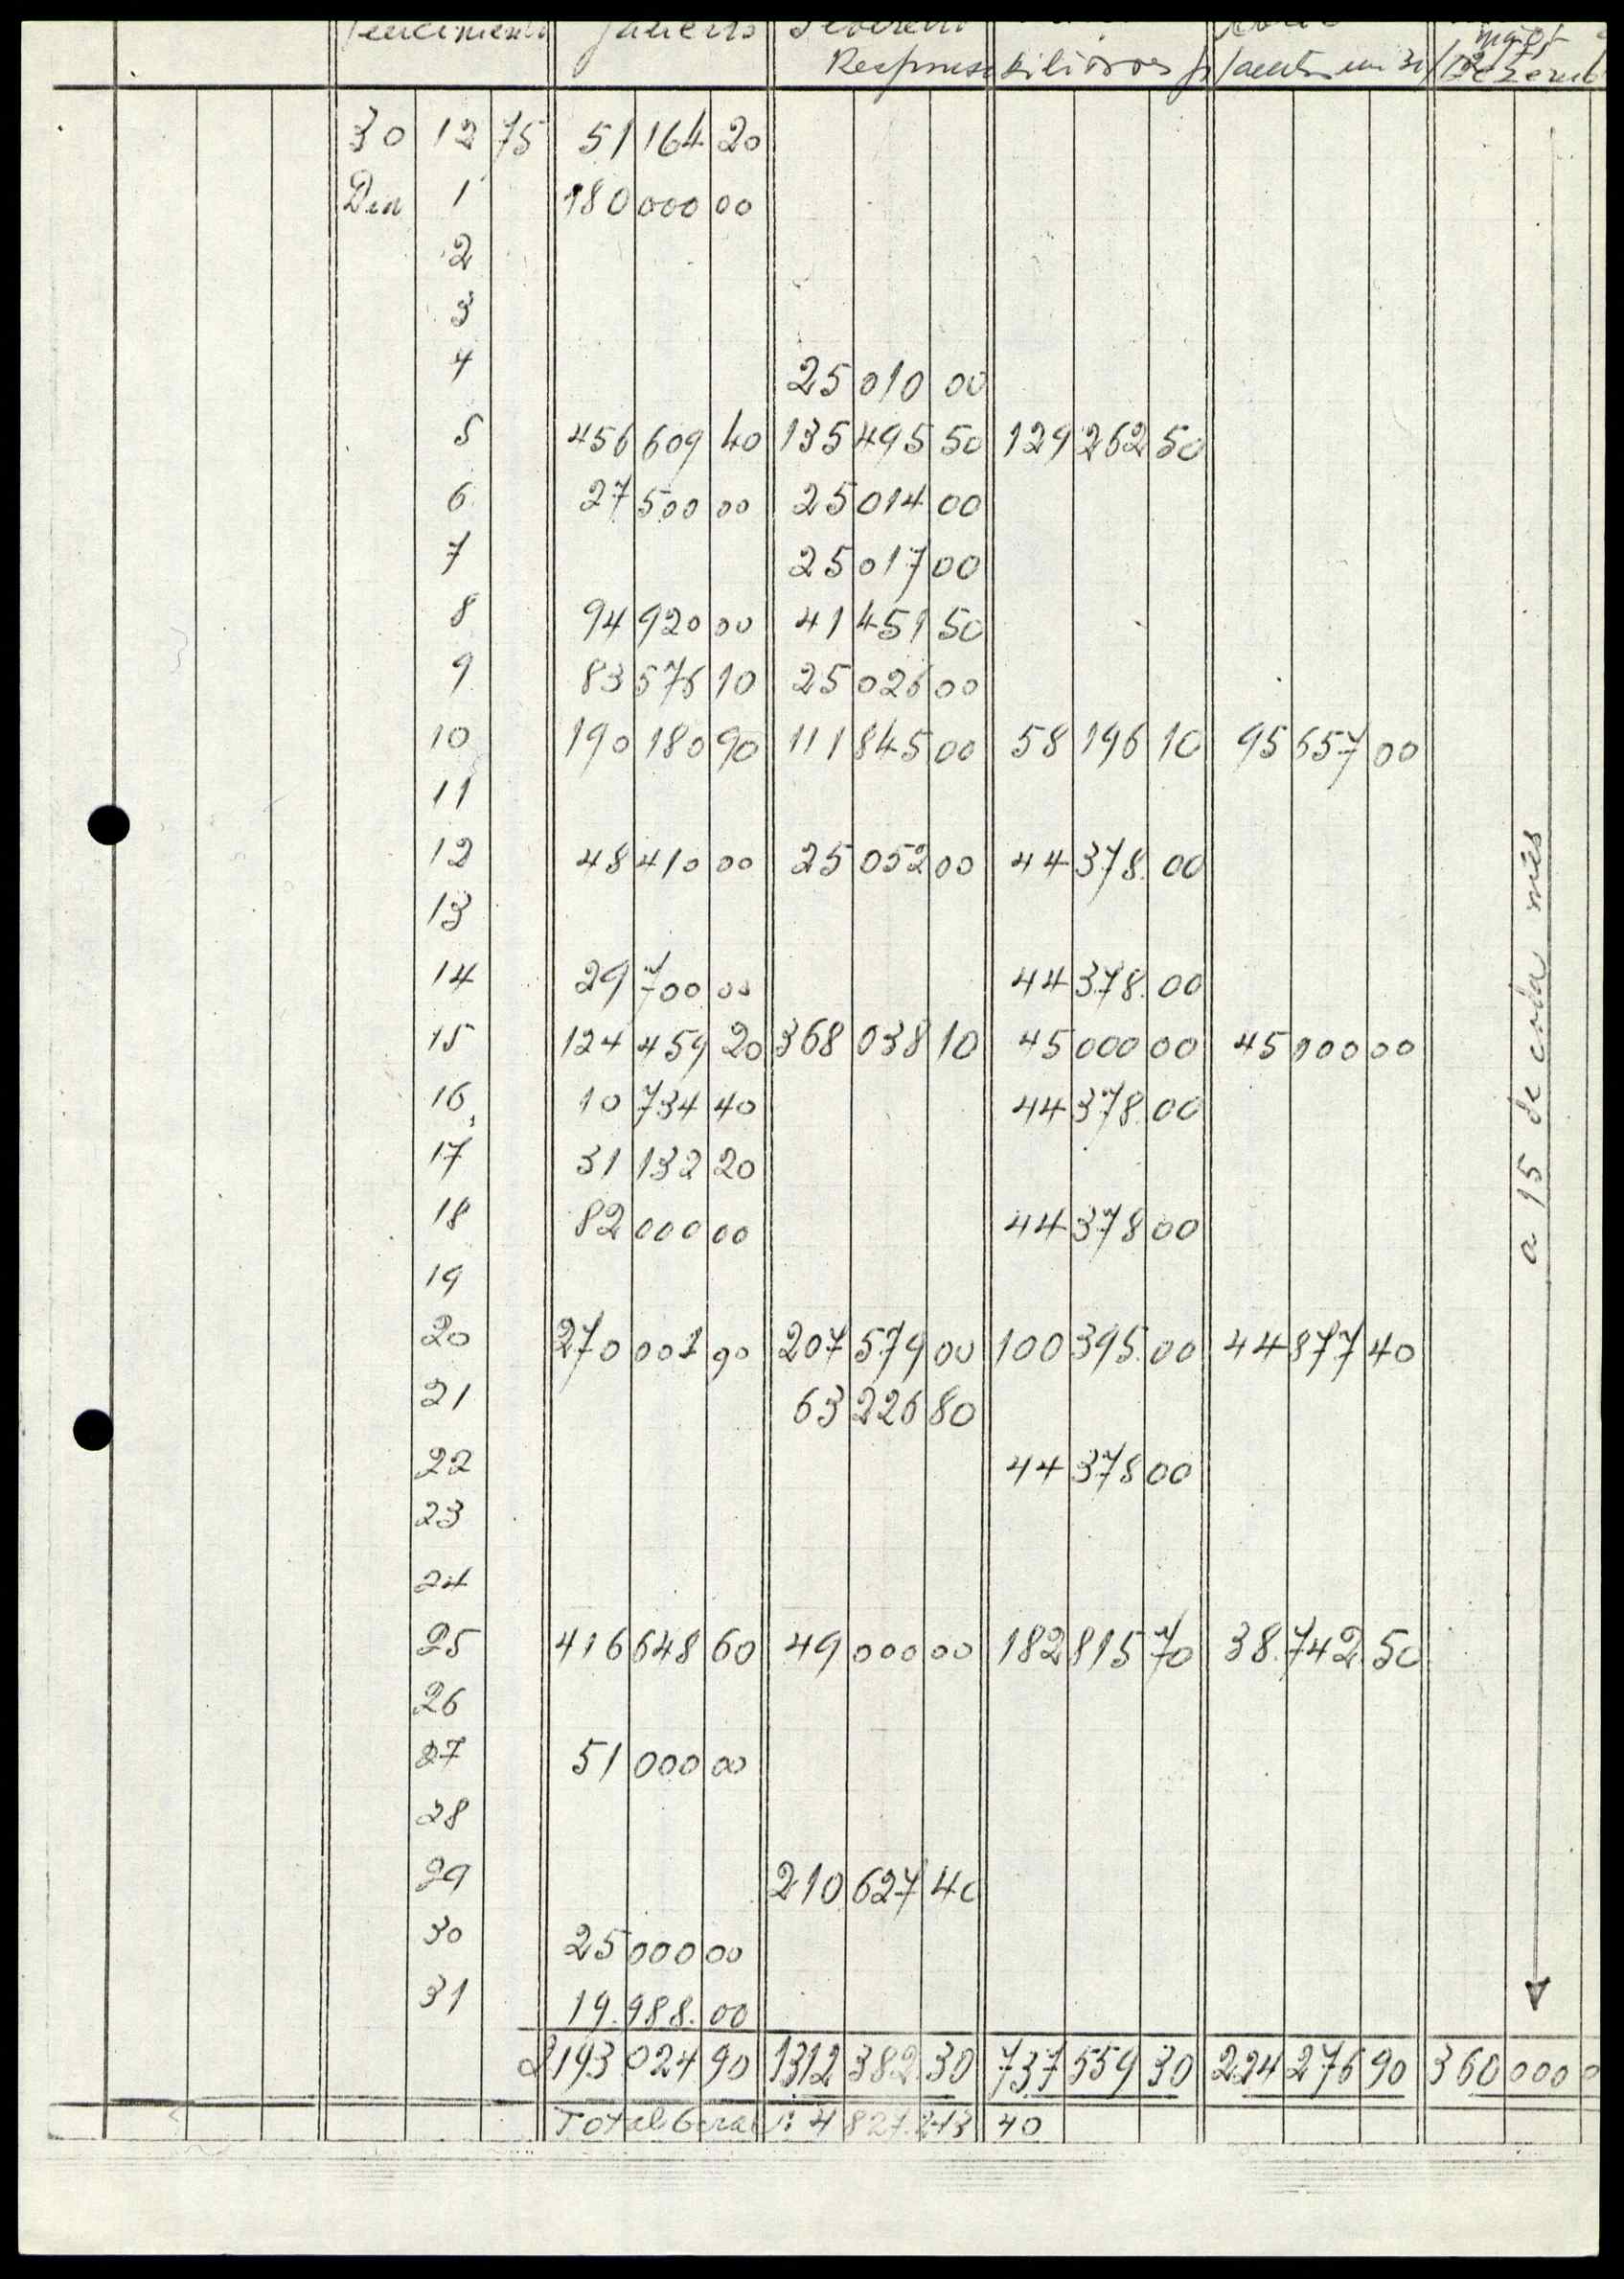 Vencimento Janeiro Fevereiro
Responsabilidades p/ 31/12
30 12 75 51 164 20
Dia 1 180 000 00
2
3
4 25 010 00
5 456 609 40 135 495 50 129 262 50
6 27 500 00 25 014 00
7 25 017 00
8 94 920 00 41 451 50
9 83 576 10 25 026 00
10 190 180 90 111 845 00 58 196 10 95 657 00
11
12 48 410 00 25 052 00 44 378 00
13
14 29 700 00 44 378 00
15 124 459 20 368 038 10 45 000 00 45 000 00
16 10 734 40 44 378 00
17 31 132 20
18 82 000 00 44 378 00
19
20 270 001 90 207 579 00 100 395 00 44 877 40
21 63 226 80
22 44 378 00
23
24
25 416 648 60 49 000 00 182 815 70 38.742.50
26
27 51 000 00
28
29 210 627 40
30 25 000 00
31 19.988.00
2193 024 90 1312 382 30 737 559 30 224 276 90 360 000 0
Total Geral: 4 827.243 40
a 15 de cada mês